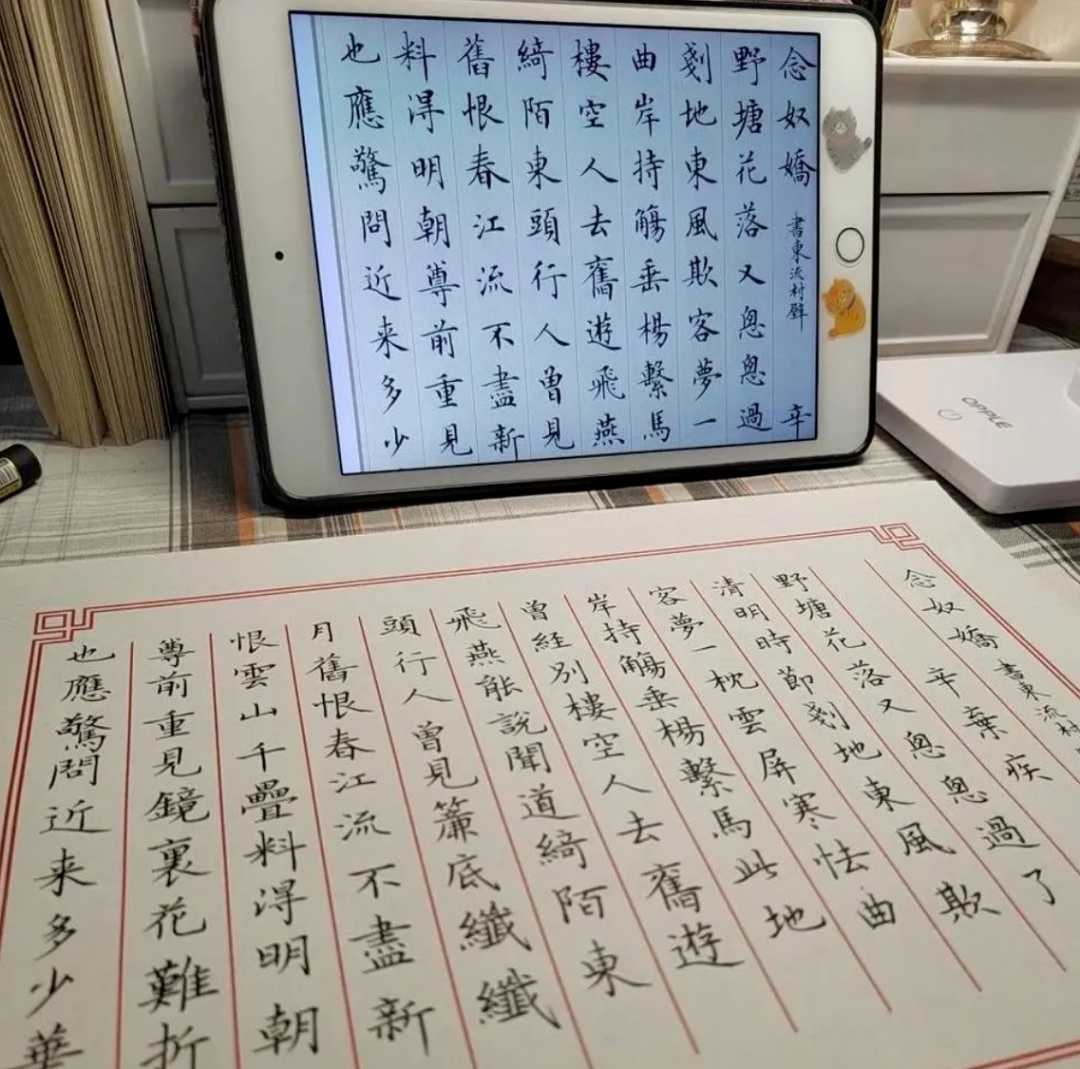 念奴嬌 書東流村壁 辛
野塘花落又悤悤過
剗地東風欺客夢一
曲岸持觴垂楊繫馬
樓空人去舊遊飛燕
綺陌東頭行人曾見
舊恨春江流不盡新
料得明朝尊前重見
也應驚問近来多少
OPPLE
念奴嬌 書東流村 辛棄疾
野塘花落又悤悤過了
清明時節剗地東風欺
客夢一枕雲屏寒怯曲
岸持觴垂楊繫馬此地
曾経別樓空人去舊遊
飛燕能說聞道綺陌東
頭行人曾見簾底纖纖
月舊恨春江流不盡新
恨雲山千疊料得明朝
尊前重見鏡裏花難折
也應驚問近来多少華